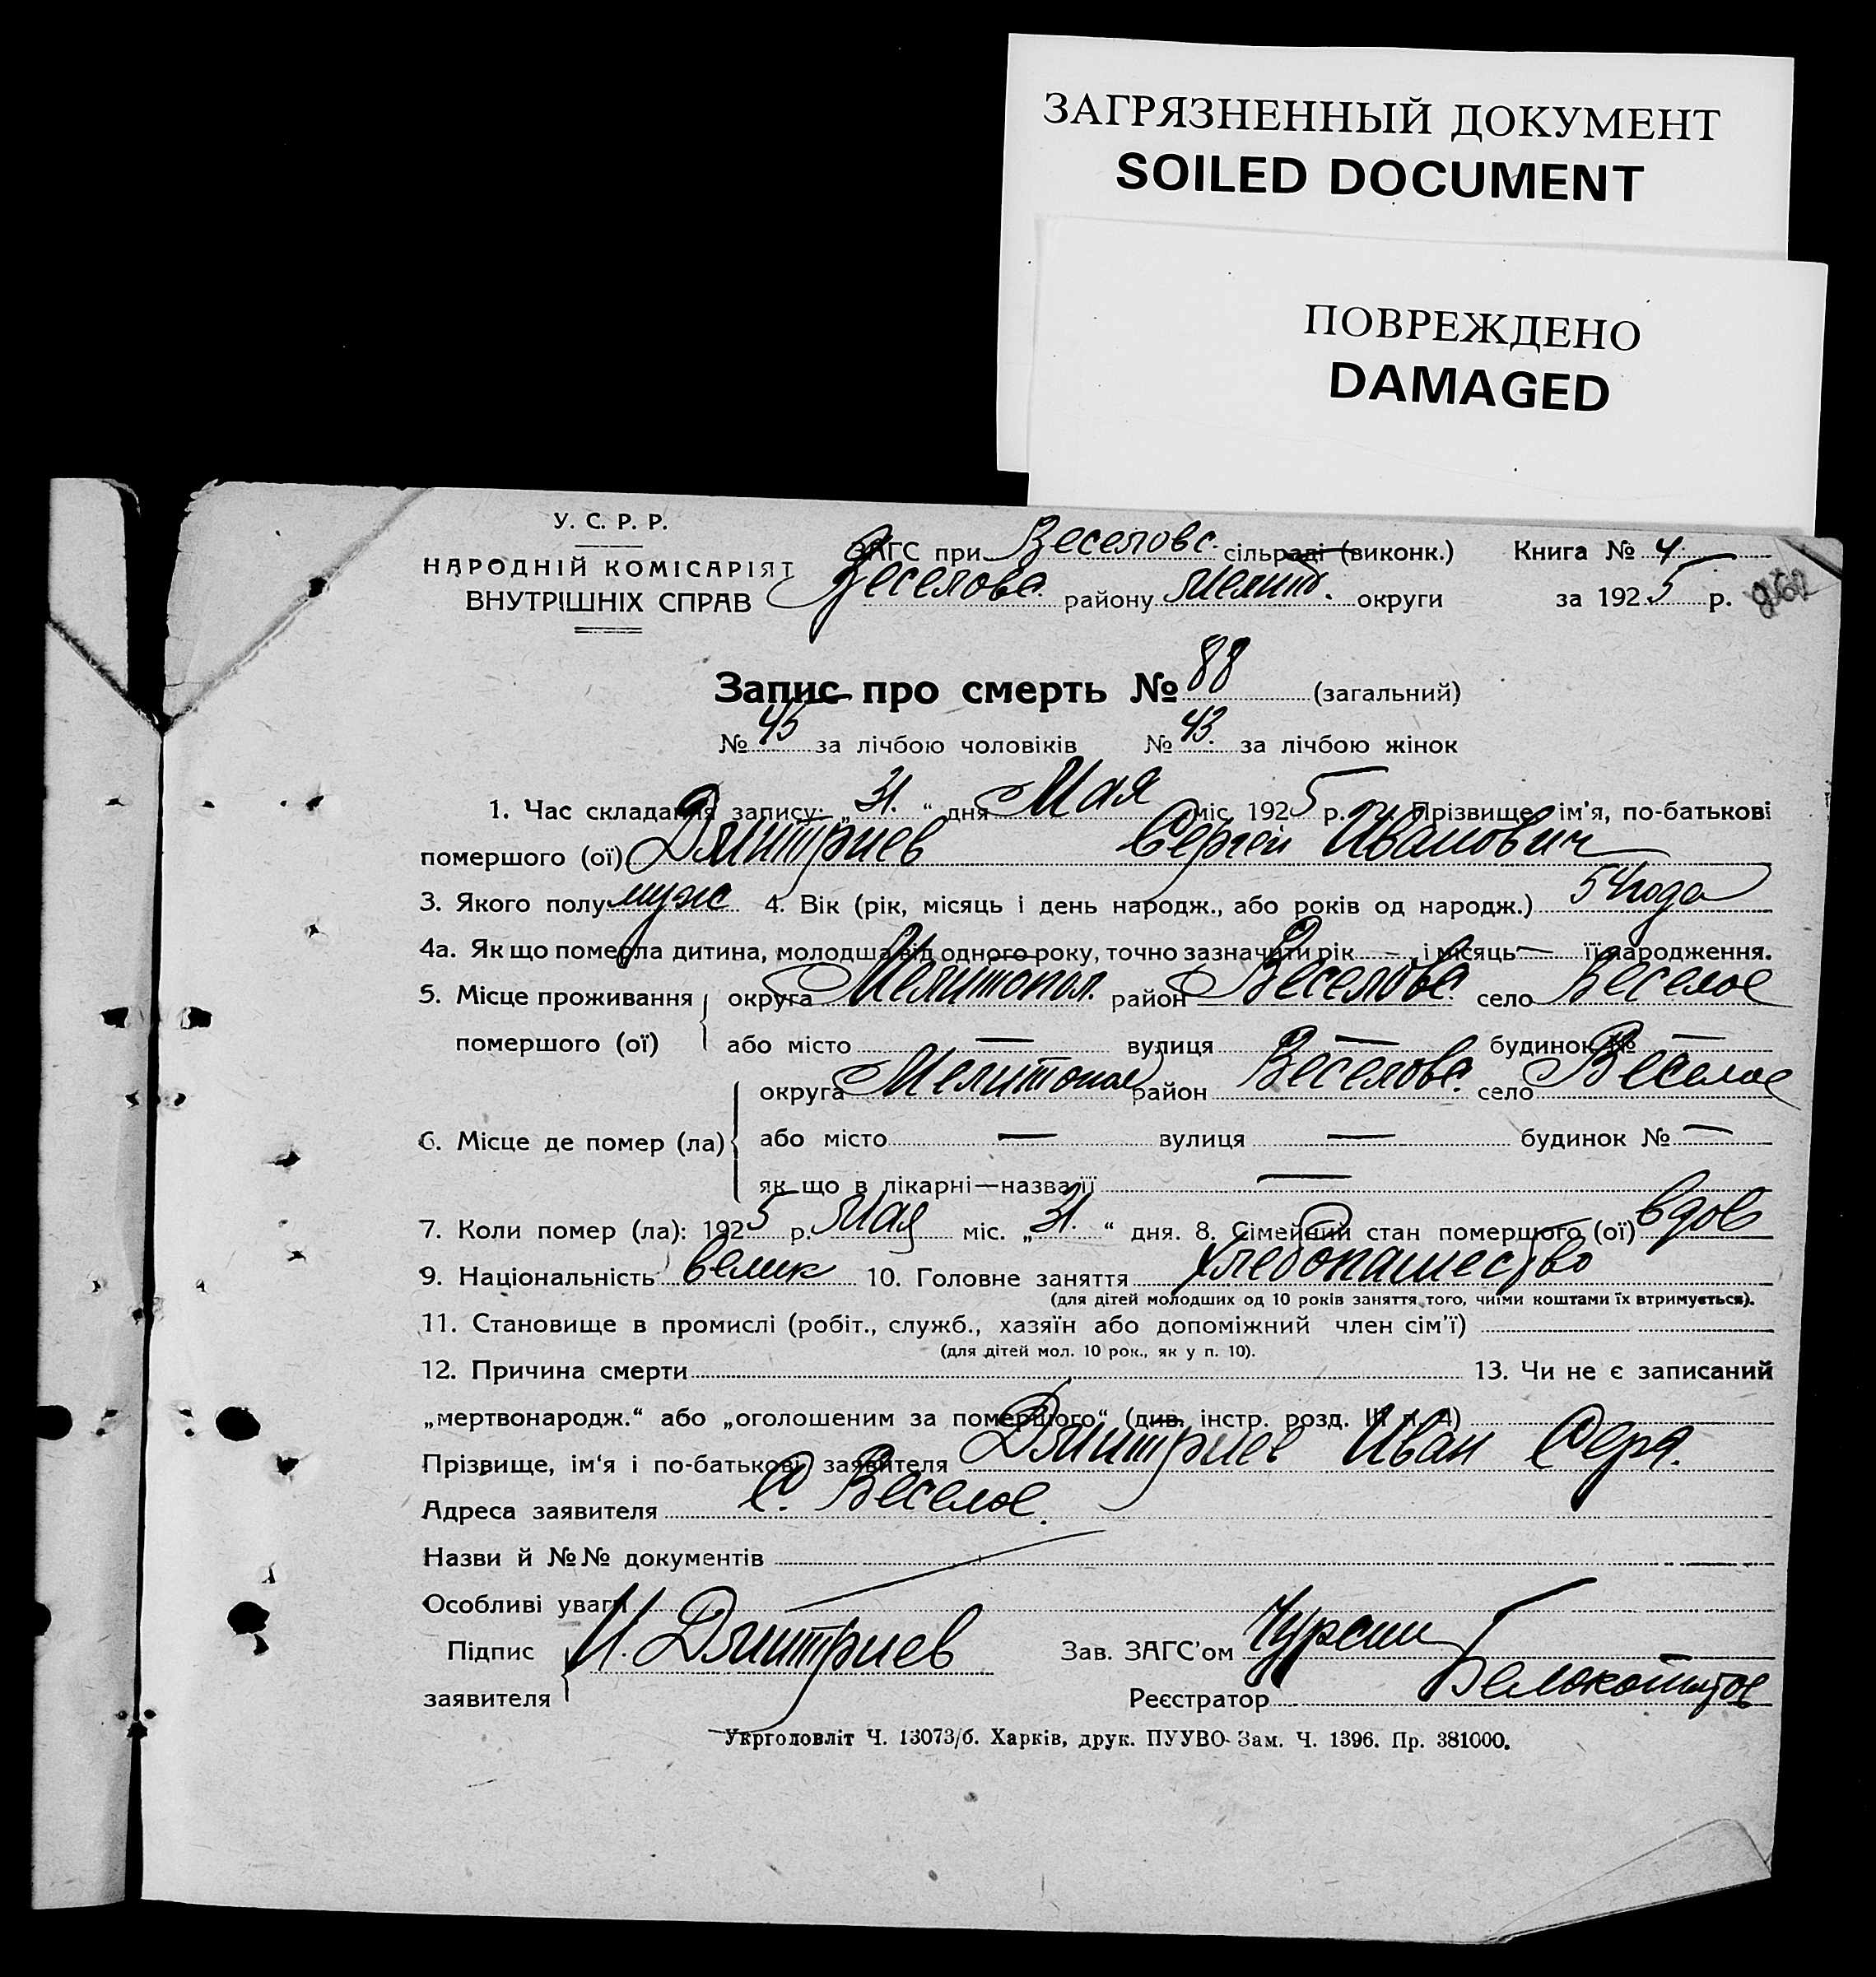 ЗАГРЯЗНЕННЫЙ ДОКУМЕНТ
SOILED DOCUMENT
ПОВРЕЖДЕНО
DAMAGED
У. С. Р. Р.
НАРОДНІЙ КОМІСАРІЯТ
ВНУТРІШНІХ СПРАВ
ЗАГС при Веселовс. сільраді (виконк.) Книга № 4
Веселовс. району Мелит. округи за 1925 р.
Запис про смерть № 88 (загальний)
№ 45 за лічбою чоловіків № 43. за лічбою жінок
1. Час складання запису: „31.“ дня Мая міс. 1925 р. 2. Прізвище, ім'я, по-батькові
помершого (ої) Дмитриев Сергей Иванович
3. Якого полу муж 4. Вік (рік, місяць і день народж., або років од народж.) 54 года
4а. Як що померла дитина, молодша від одного року, точно зазначити рік — і місяць — її народження.
5. Місце проживання округа Мелитопол. район Веселовс. село Веселое
помершого (ої) або місто — вулиця — будинок № —
округа Мелитопол район Веселовс. село Веселое
6. Місце де помер (ла) або місто — вулиця — будинок № —
як що в лікарні—назва її —
7. Коли помер (ла): 1925 р. Мая міс. „31.“ дня. 8. Сімейний стан помершого (ої) вдов
9. Національність велик 10. Головне заняття Хлебопашество
(для дітей молодших од 10 років заняття того, чиїми коштами їх втримується).
11. Становище в промислі (робіт., служб., хазяїн або допоміжний член сім'ї)
(для дітей мол. 10 рок., як у п. 10).
12. Причина смерти 13. Чи не є записаний
„мертвонародж.“ або „оголошеним за помершого“ (див. інстр. розд. III п. 4)
Прізвище, ім'я і по-батькові заявителя Дмитриев Иван Серг.
Адреса заявителя С. Веселое.
Назви й №№ документів
Особливі уваги
Підпис И. Дмитриев Зав. ЗАГС'ом
заявителя Реєстратор
Укрголовліт Ч. 13073/б. Харків, друк. ПУУВО- Зам. Ч. 1396. Пр. 381000.